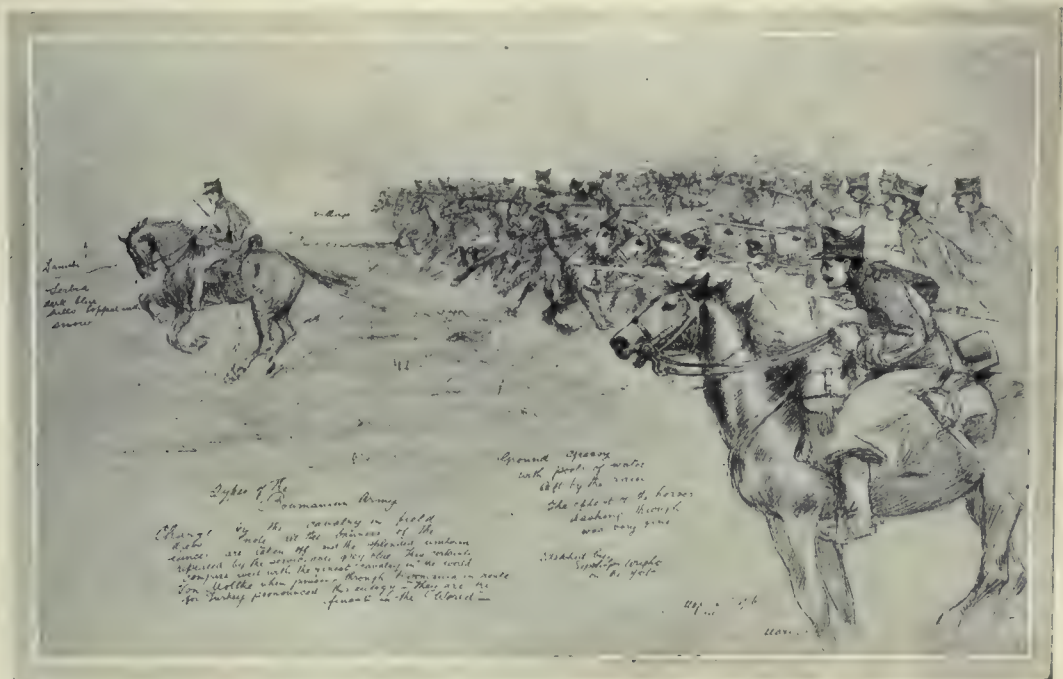 village
Danube
Serbia
dark blue
hills topped with
snow
Types of the
Roumanian Army
Charge by the cavalry in field
dress note all the banners of the
lances are taken off and the splendid uniform
replaced by the serviceable grey blue
compare well with the finest cavalry in the world
Von Moltke when passing through Roumania en route
for Turkey pronounced this eulogy - They are the
finest in the World -
Ground greasy
with pools of water
left by the rain
The effect of the horses
dashing through
was very fine
Sketched by
Seppings Wright
on the spot